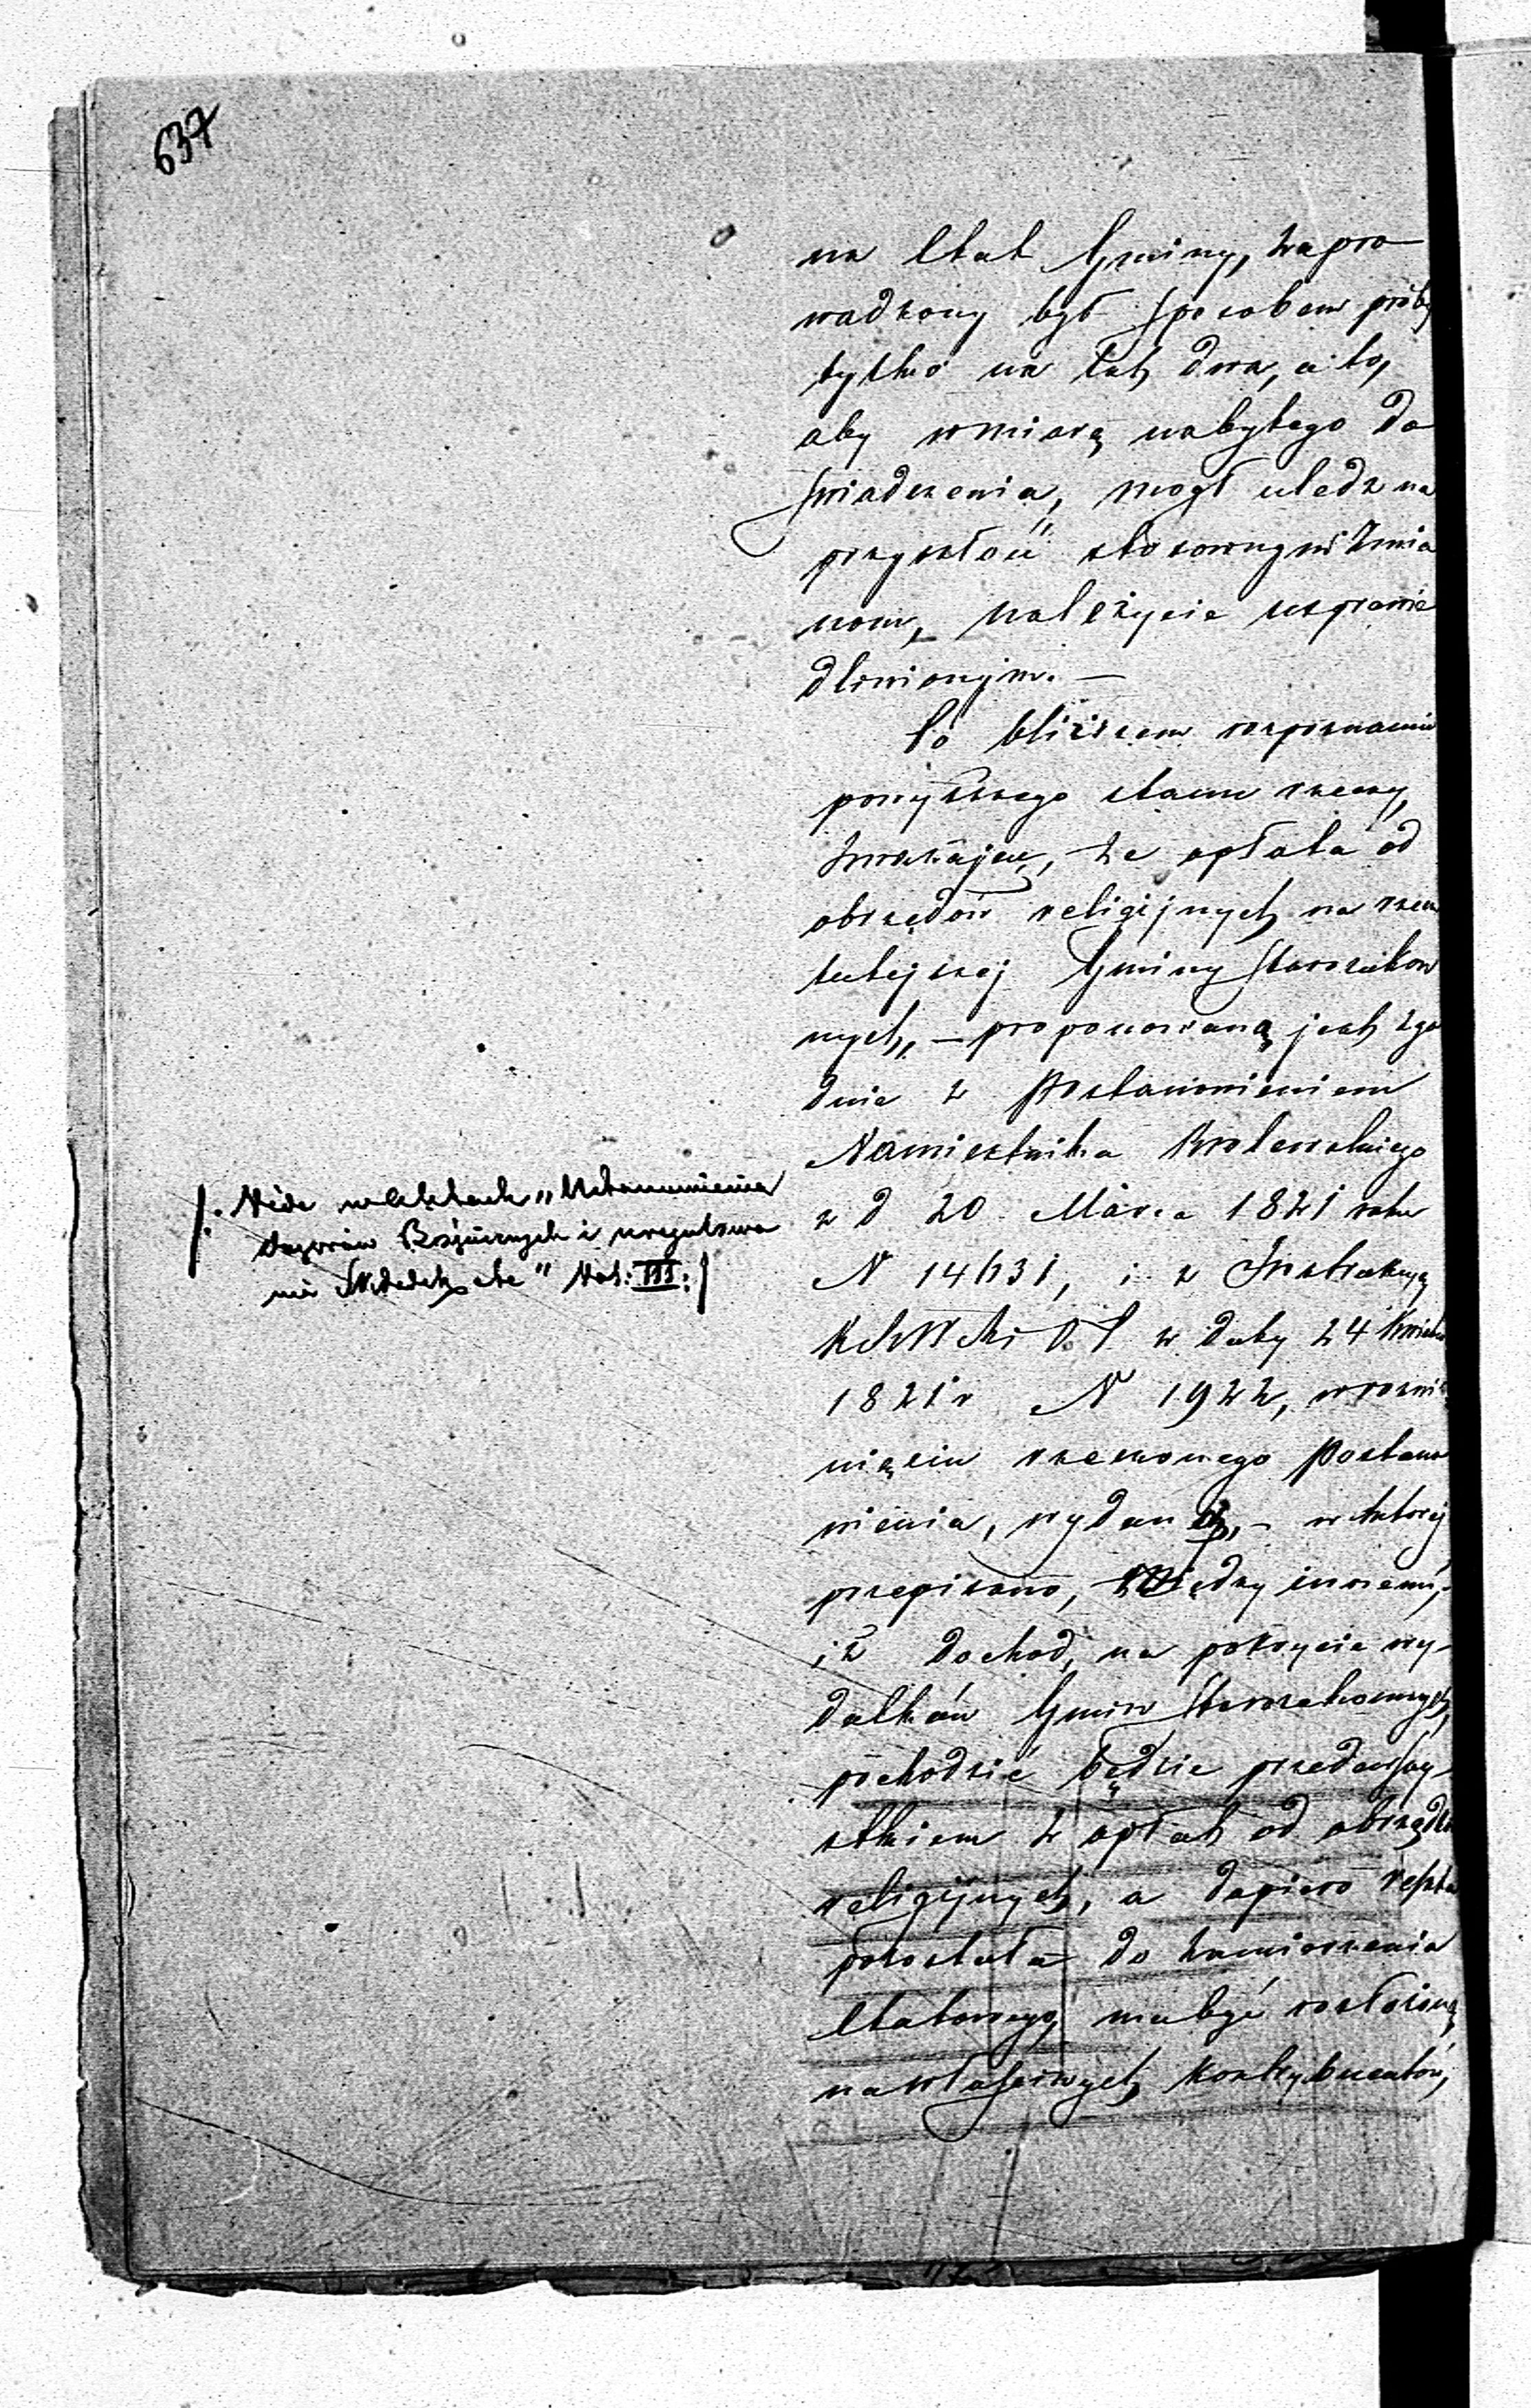 637
na Etat Gminy, zapro
wadzony był sposobem próby
tylko na lat dwa, a to,
aby w miarę nabytego do
świadczenia, mógł uledz na
przyszłość stosownym zmia
nom, należycie usprawie
dliwionym. —
Po bliższem rozpoznaniu
powyższego stanu rzeczy,
zważając, że opłata od
obrzędów religijnych na rzecz
tutejszej Gminy Starozakon
nych, — proponowaną jest zgo
dnie z Postanowieniem
Namiestnika Królewskiego
z d 20 Marca 1821 roku
N 14631, i z Instrukcyą
z daty 24 Kwietn
1821 r N 1922, w rozwi
nięciu rzeczonego Postano
wienia, wydanej, — w której
przepisano, między innemi,
iż dochod, na pokrycie wy-
datków Gmin Starozakonnych,
pochodzić będzie przedewszy-
stkiem z opłat od obrzędów
religijnych, a dopiero reszta
pozostała do zamierzenia
Etatowego, ma być rozłożoną
na właściwych kontrybuentów,
/: Vide w Aktach „Ustanowienia
Dozorów Bóżniczych i uregulowa
nia Składek etc" Vol: III :/